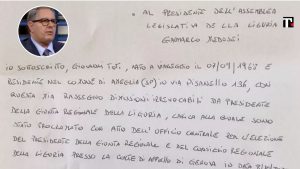 AL PRESIDENTE DELL'ASSEMBLEA
LEGISLATIVA DELLA LIGURIA
GIANMARCO MEDUSEI
IO SOTTOSCRITTO, GIOVANNI TOTI, NATO A VIAREGGIO IL 07/09/1968 E
RESIDENTE NEL COMUNE DI AMEGLIA (SP) IN VIA PISANELLO 136, CON
QUESTA MIA RASSEGNO DIMISSIONI IRREVOCABILI DA PRESIDENTE
DELLA GIUNTA REGIONALE DELLA LIGURIA, CARICA ALLA QUALE SONO
STATO PROCLAMATO CON ATTO DELL'UFFICIO CENTRALE PER L'ELEZIONE
DEL PRESIDENTE DELLA GIUNTA REGIONALE E DEL CONSIGLIO REGIONALE
DELLA LIGURIA PRESSO LA CORTE DI APPELLO DI GENOVA IN DATA